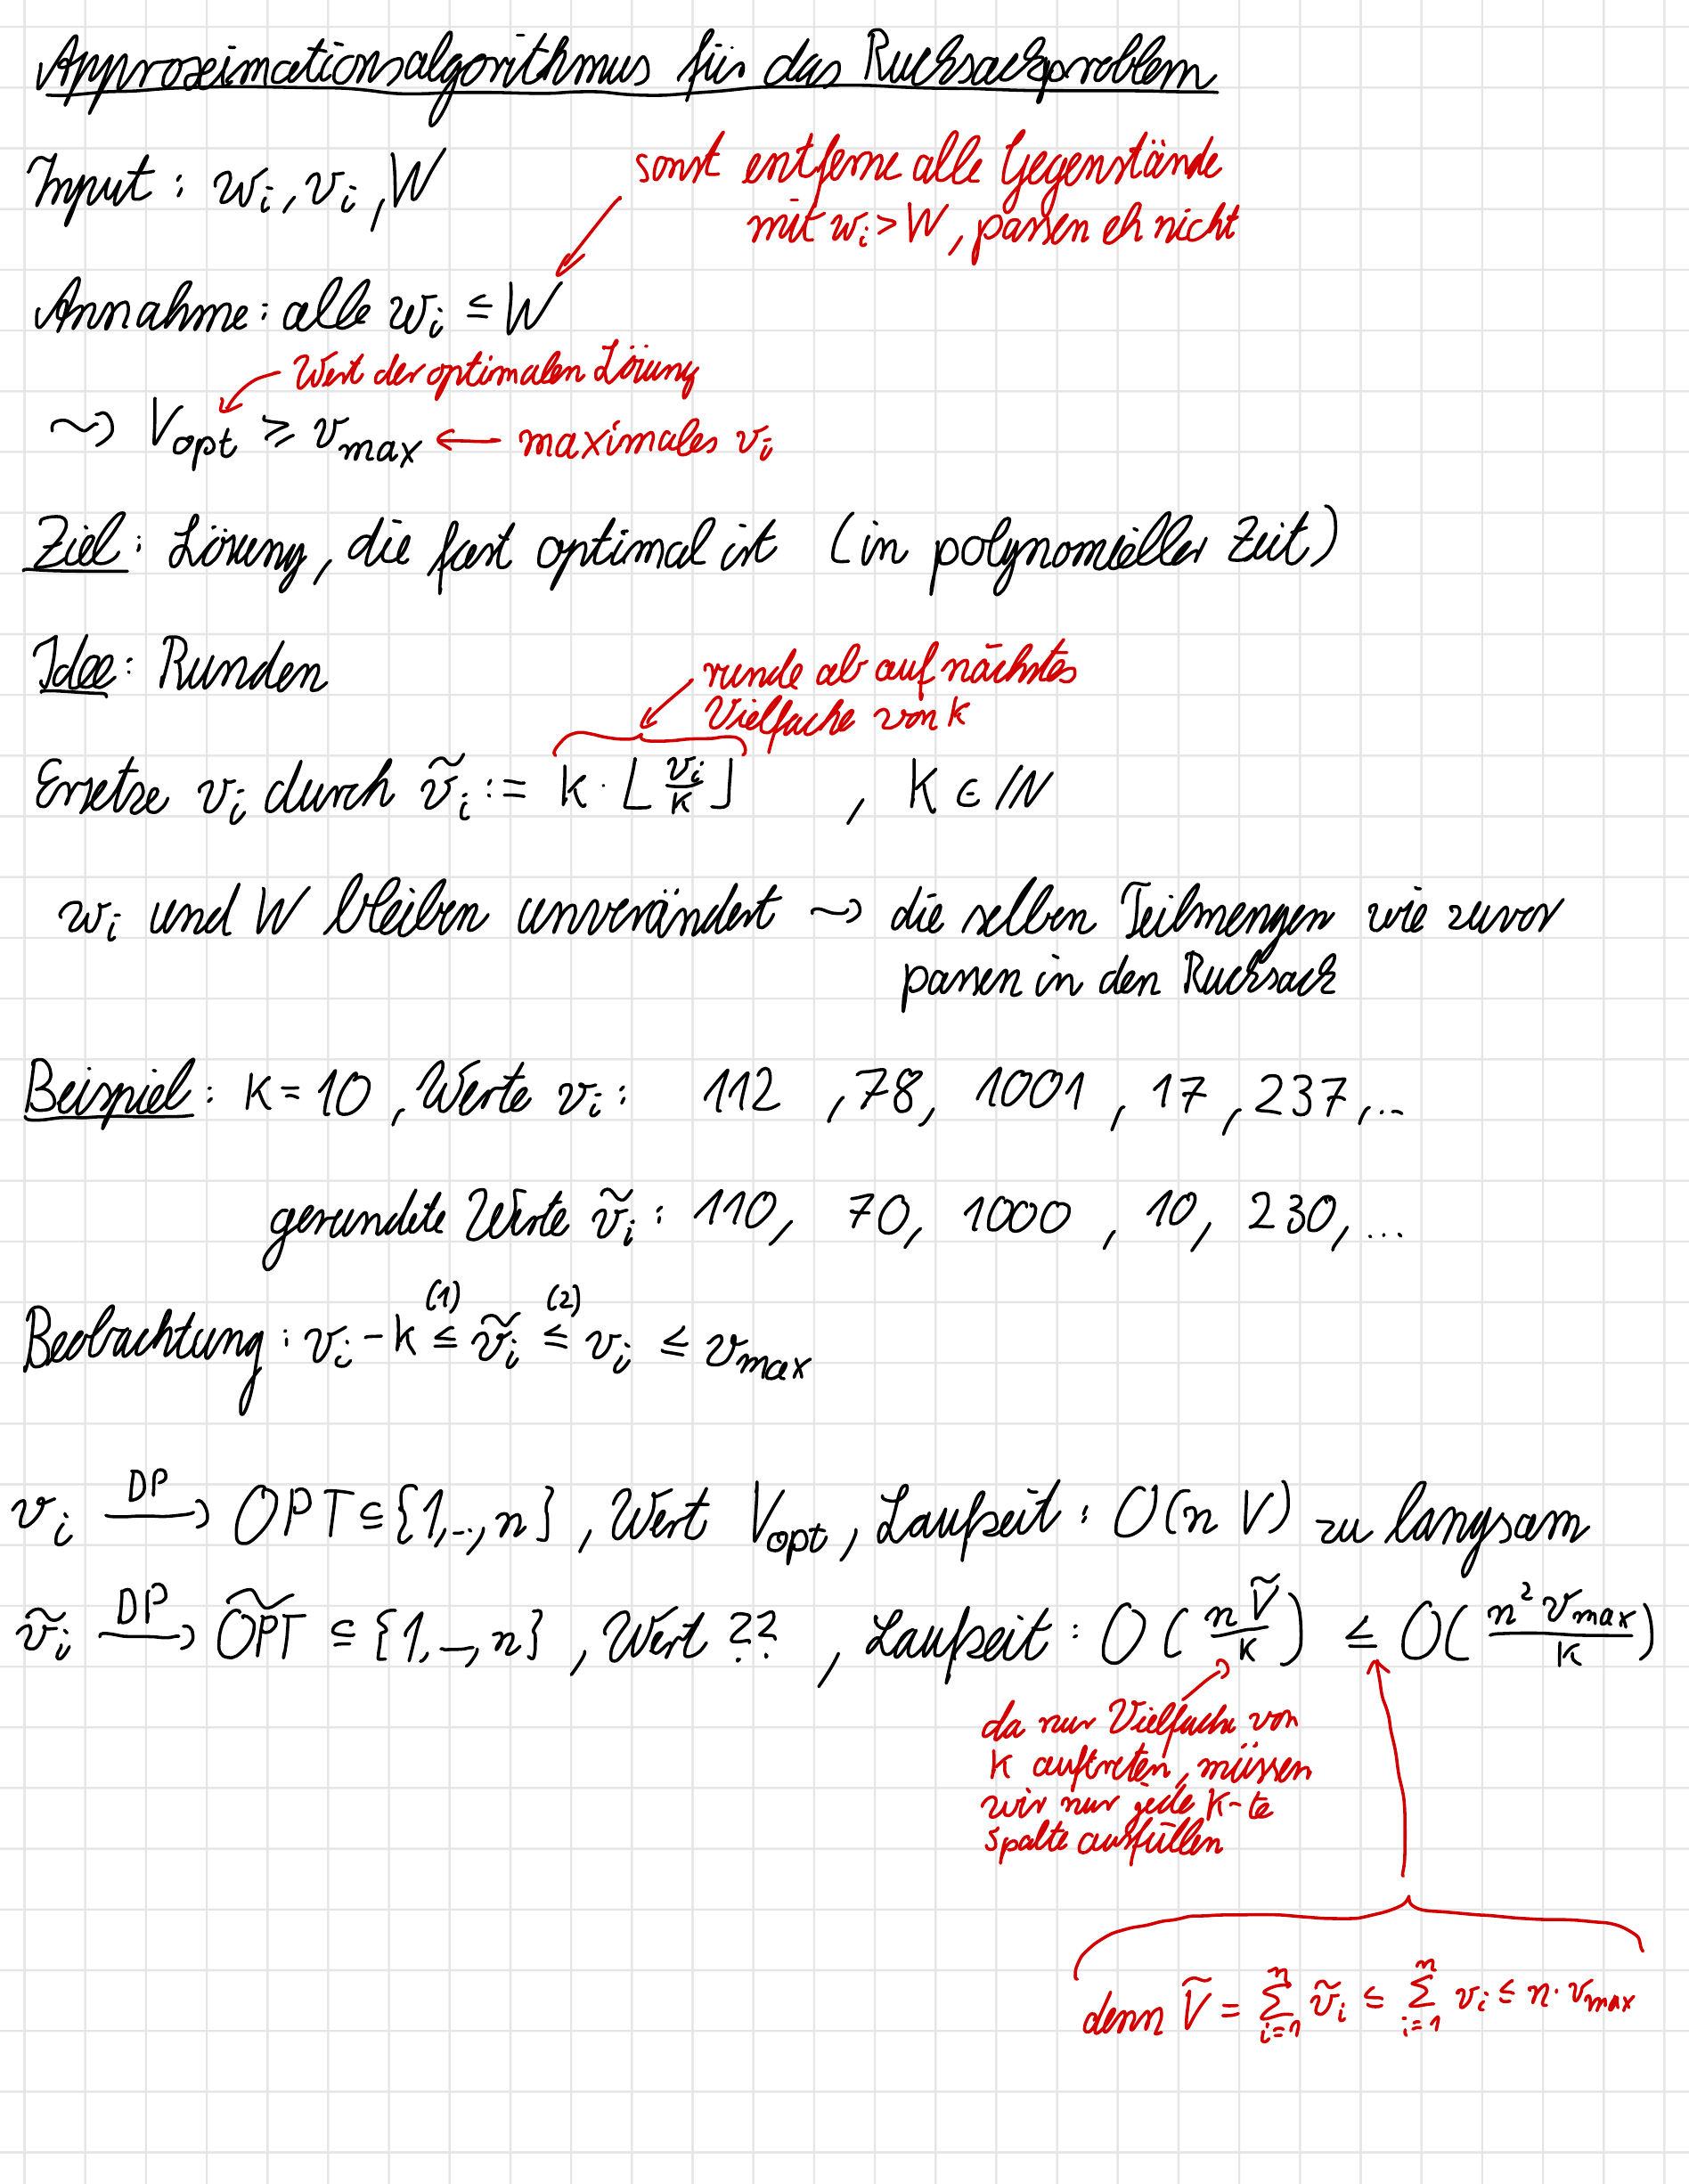 Approximationsalgorithmus für das Rucksackproblem
Input: wᵢ, vᵢ, W
sonst entferne alle Gegenstände
mit wᵢ > W, passen eh nicht
Annahme: alle wᵢ ≤ W
Wert der optimalen Lösung
⇝ V_opt ≥ v_max ← maximales vᵢ
Ziel: Lösung, die fast optimal ist (in polynomieller Zeit)
Idee: Runden
runde ab auf nächstes
Vielfache von K
Ersetze vᵢ durch ṽᵢ := K · ⌊vᵢ/K⌋ , K ∈ ℕ
wᵢ und W bleiben unverändert ⇝ die selben Teilmengen wie zuvor
passen in den Rucksack
Beispiel: K = 10, Werte vᵢ: 112, 78, 1001, 17, 237, ...
gerundete Werte ṽᵢ: 110, 70, 1000, 10, 230, ...
Beobachtung: vᵢ - K ≤⁽¹⁾ ṽᵢ ≤⁽²⁾ vᵢ ≤ v_max
vᵢ —DP→ OPT ⊆ {1,..,n}, Wert V_opt, Laufzeit: O(n V) zu langsam
ṽᵢ —DP→ OPT̃ ⊆ {1,..,n}, Wert ??, Laufzeit: O(nṼ/K) ≤ O(n² v_max/K)
da nur Vielfache von
K auftreten, müssen
wir nur jede K-te
Spalte ausfüllen
denn Ṽ = ∑ᵢ₌₁ⁿ ṽᵢ ≤ ∑ᵢ₌₁ⁿ vᵢ ≤ n · v_max